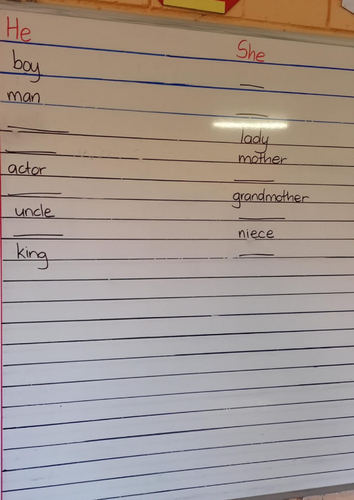 He She
boy ___
man ___
___ lady
___ mother
actor ___
___ grandmother
uncle ___
___ niece
king ___